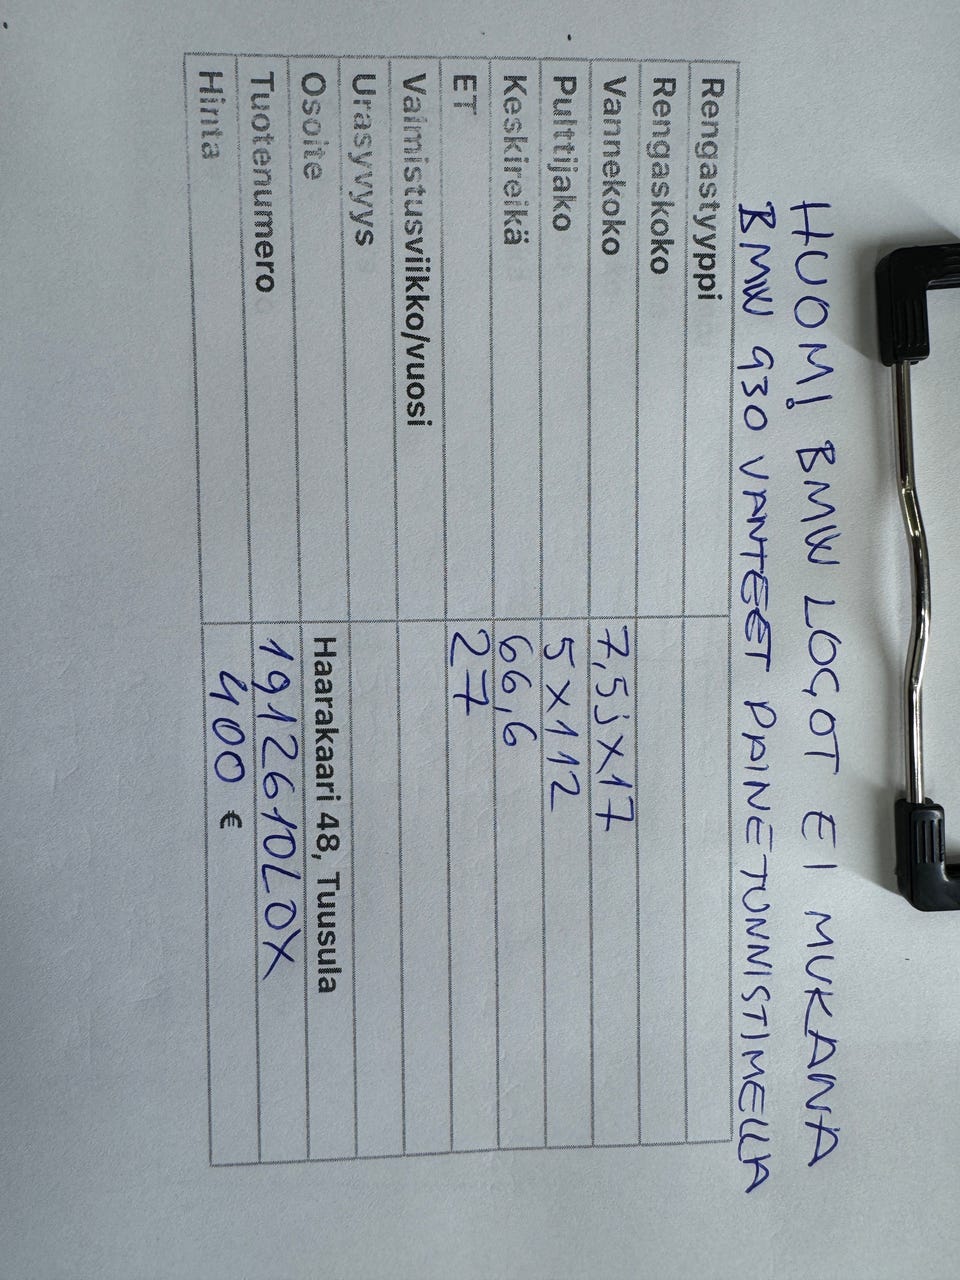 HUOM! BMW LOGOT EI MUKANA
BMW G30 VANTEET PAINETUNNISTIMELLA
Rengastyyppi
Rengaskoko
Vannekoko 7,5jx17
Pulttijako 5x112
Keskireikä 66,6
ET 27
Valmistusviikko/vuosi
Urasyvyys
Osoite Haarakaari 48, Tuusula
Tuotenumero 1912610LOX
Hinta 400 €